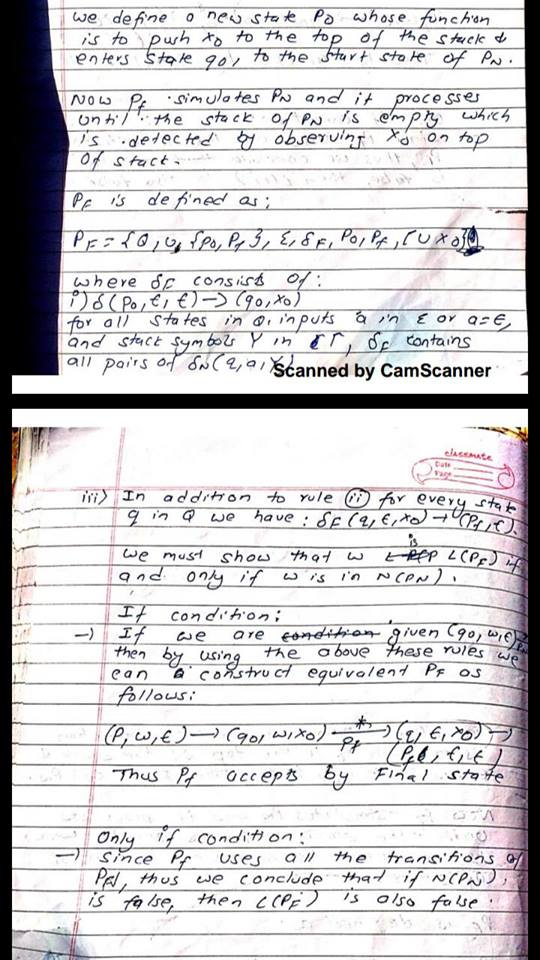 we define a new state Po whose function
is to push xo to the top of the stack &
enters state qo, to the start state of PN.
Now Pf simulates PN and it processes
until the stack of PN is empty which
is detected by observing xo on top
of stack.
PF is defined as;
PF = {Q, U, {po, Pf}, Σ, δF, Po, Pf, [U xo}
where δF consists of:
i) δ(po, ε, ε) → (qo, xo)
for all states in Q, inputs a in Σ or a=ε,
and stack symbols Y in Γ, δF contains
all pairs of δN(q, a, Y)
Scanned by CamScanner
classmate
Date
Page
iii) In addition to rule (ii) for every state
q in Q we have: δF(q, ε, xo) → (Pf, ε).
we must show that w is L(PF) if
and only if w is in N(PN).
If condition;
→ If we are condition given (qo, w, ε)
then by using the above these rules we
can a construct equivalent Pf as
follows:
(P, w, ε) → (qo, w, xo) *→ Pf (q, ε, xo) →
(Pf, ε, ε)
Thus Pf accepts by Final state
Only if condition:
→ Since Pf uses all the transitions of
PN, thus we conclude that if N(PN)
is false, then L(PF) is also false.